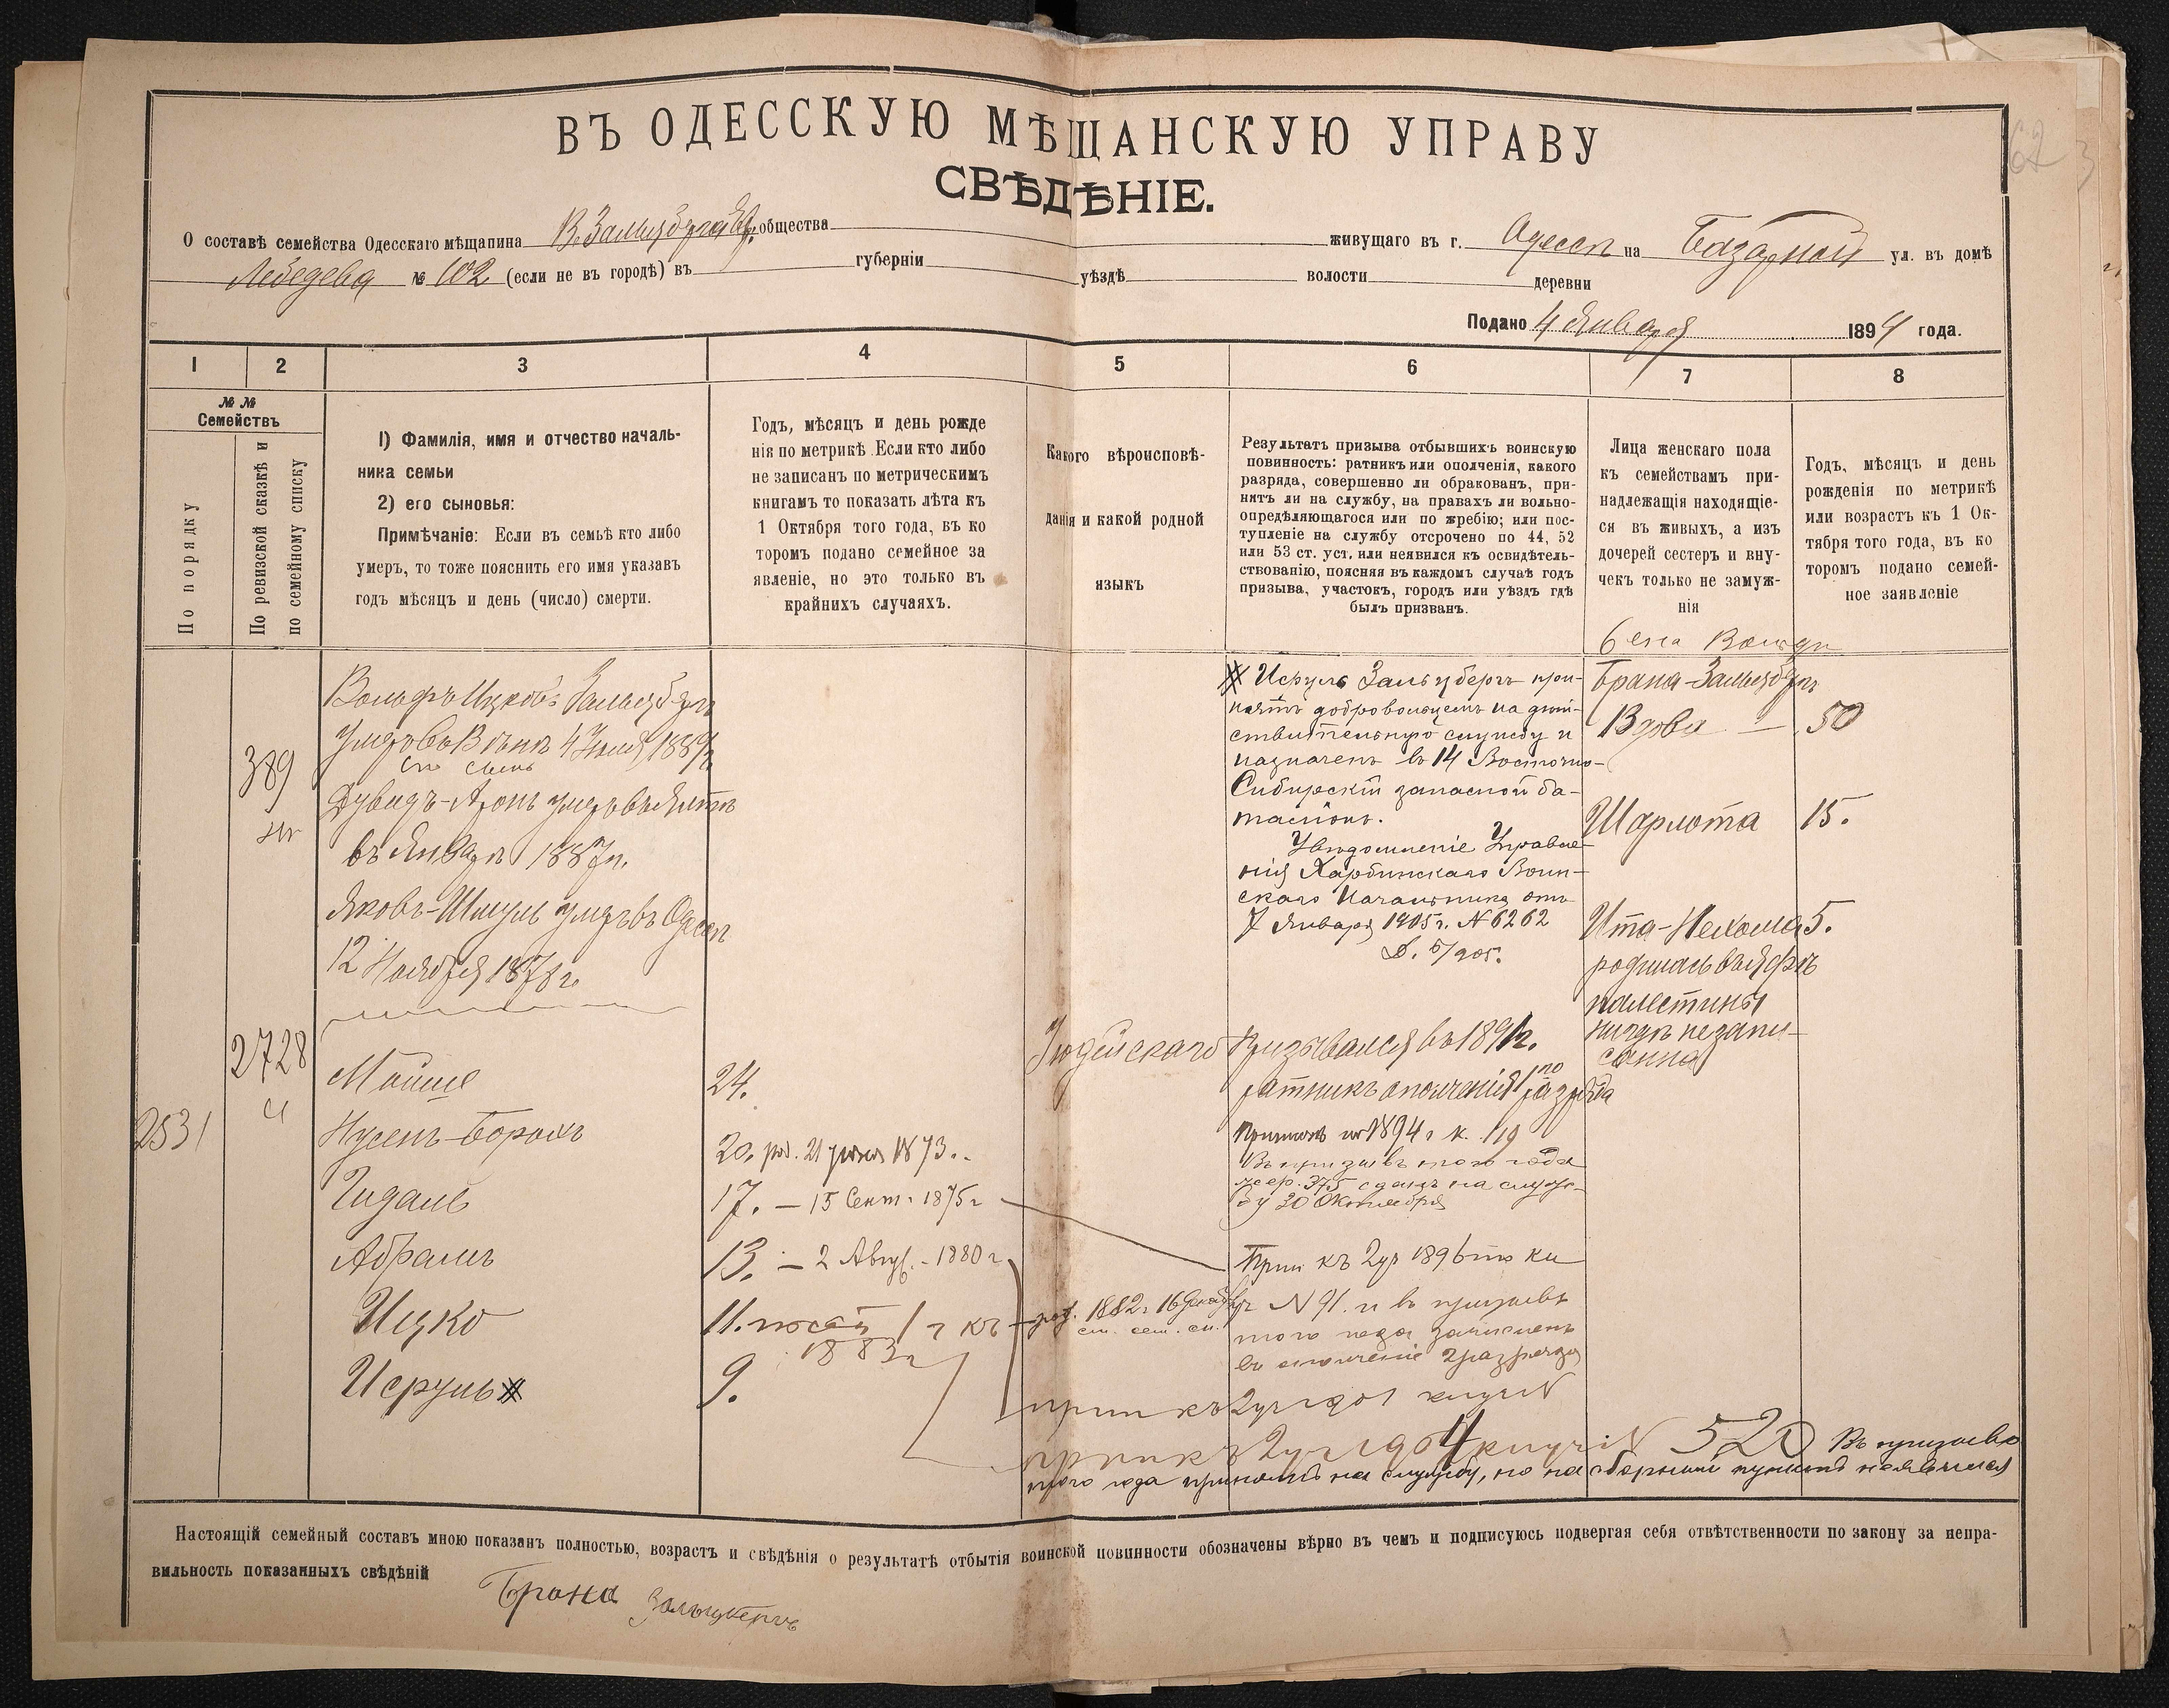 ВЪ ОДЕССКУЮ МѢЩАНСКУЮ УПРАВУ
СВѢДѢНІЕ.
О составѣ семейства Одесскаго мѣщанина В. Зальцберга общества живущаго въ г. Одессѣ на Базарной ул. въ домѣ
Лебедева № 102 (если не въ городѣ) въ губерніи уѣздѣ волости деревни
Подано 4 Января 1894 года.
1 2 3 4 5 6 7 8
№ № Семействъ
По порядку
По ревизской сказкѣ и
по семейному списку
1) Фамилія, имя и отчество началь-
ника семьи
2) его сыновья:
Примѣчаніе: Если въ семьѣ кто либо
умеръ, то тоже пояснить его имя указавъ
годъ мѣсяцъ и день (число) смерти.
Годъ, мѣсяцъ и день рожде
нія по метрикѣ. Если кто либо
не записанъ по метрическимъ
книгамъ то показать лѣта къ
1 Октября того года, въ ко
торомъ подано семейное за
явленіе, но это только въ
крайнихъ случаяхъ.
Какого вѣроисповѣ-
данія и какой родной
языкъ
Результатъ призыва отбывшихъ воинскую
повинность: ратникъ или ополченія, какого
разряда, совершенно ли обракованъ, при-
нятъ ли на службу, на правахъ ли вольно-
опредѣляющагося или по жребію; или пос-
тупленіе на службу отсрочено по 44, 52
или 53 ст. уст. или неявился къ освидѣтель-
ствованію, поясняя въ каждомъ случаѣ годъ
призыва, участокъ, городъ или уѣздъ гдѣ
былъ призванъ.
Лица женскаго пола
къ семействамъ при-
надлежащія находящіе-
ся въ живыхъ, а изъ
дочерей сестеръ и вну-
чекъ только не замуж-
нія
Годъ, мѣсяцъ и день
рожденія по метрикѣ
или возрастъ къ 1 Ок-
тября того года, въ ко
торомъ подано семей-
ное заявленіе
389
Вольфъ Ицковъ Зальцбергъ
умеръ въ Вѣнѣ 4 Іюня 188
Дувидъ-Аронъ умеръ въ Ялтѣ
въ Январѣ 1887 г.
Яковъ-Шмуль умеръ въ Одессѣ
12 Ноября 1878 г.
2728
Мойше 24.
2531
Нусенъ-Борохъ 20. род. 21 1873.
Гидаль 17. – 15 Сент. 1875 г
Абрамъ 13. – 2 Авг. – 1880 г
Ицко 11.
1883 г
Исруль 9.
Іудейскаго
род. 1882 г 16 Декабр
Исруль Зальцбергъ при-
нятъ добровольцемъ на дѣй-
ствительную службу и
назначенъ въ 14 Восточно-
Сибирскій запасной ба-
таліонъ.
Увѣдомленіе Управле-
нія Харбинскаго Воин-
скаго Начальника отъ
7 Января 1905 г. № 6262
Д. 5/905.
Призывался въ 1891 г.
ратникъ ополченія 1го разряда
1894 г к. 119
Въ призывъ того года
жер. 375 сданъ на служ-
бу 30 Октября
Прип къ 2 уч 1896 по кн
№ 91. и въ призывъ
того года зачисленъ
въ ополченіе 2 разряда
прип къ 2 уч 1901 кн уч №
прип къ 2 уч 1904 кн уч № 520 Въ призывъ
того года принятъ на службу, но на сборный пунктъ неявился
Жена Вольфа
Брана Зальцбергъ
Вдова – 50
Шарлота 15.
Ита-Нехома 5.
родилась въ Яффѣ
палестины
нигдѣ не запи-
санна
Настоящій семейный составъ мною показанъ полностью, возрастъ и свѣдѣнія о результатѣ отбытія воинской повинности обозначены вѣрно въ чемъ и подписуюсь подвергая себя отвѣтственности по закону за непра-
вильность показанныхъ свѣдѣній
Брана Зальцбергъ